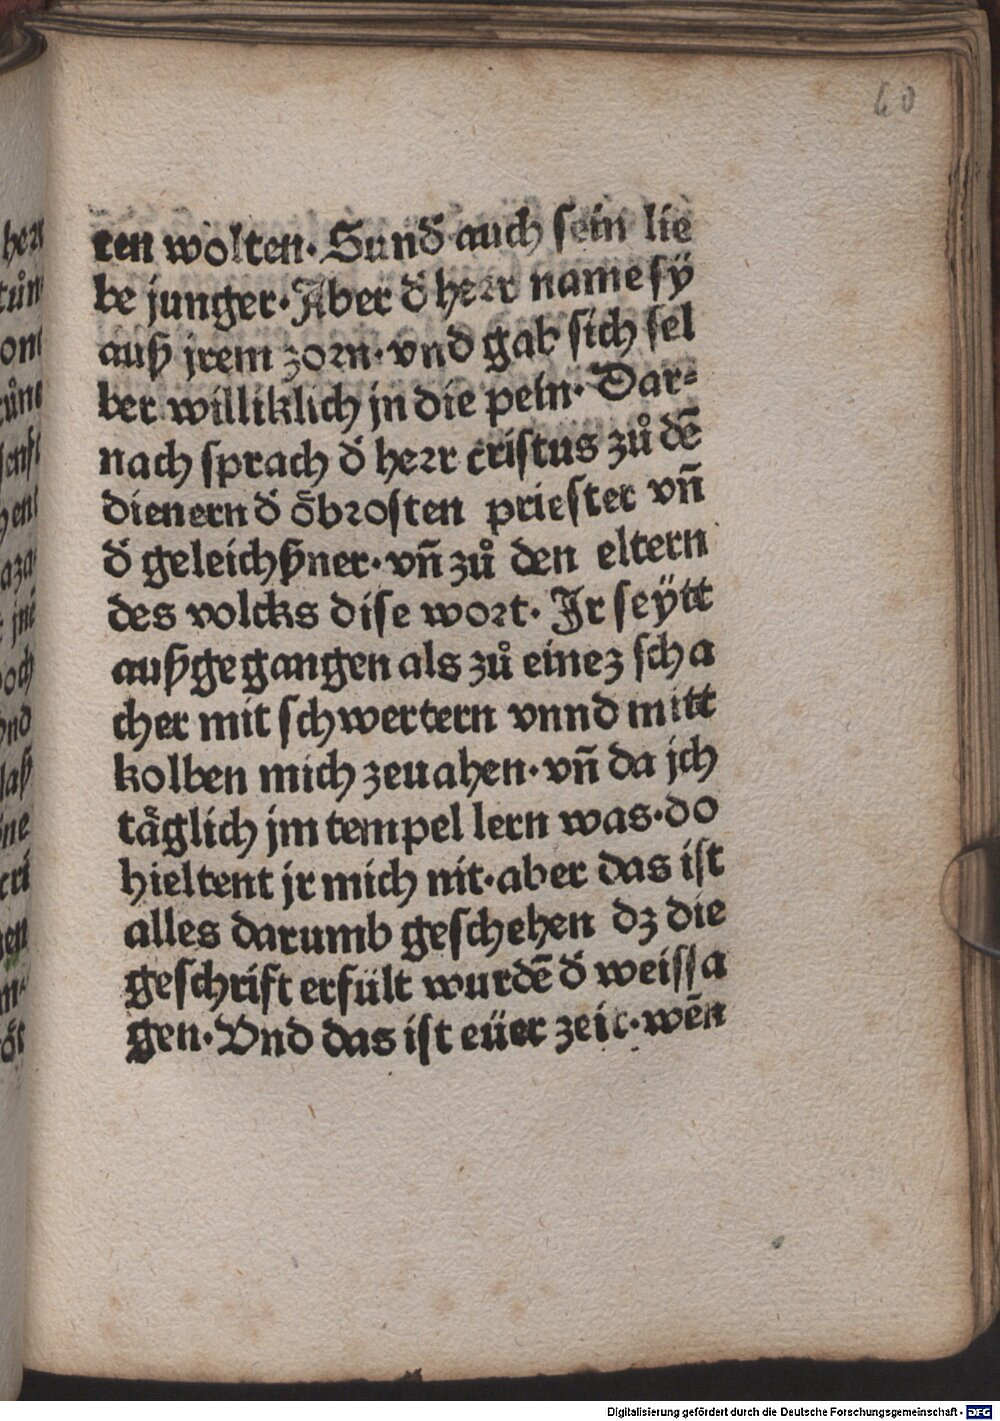 60
ten wolten. Sund̄ auch sein lie
be junger. Aber d̄ herr name sÿ
auß jrem zorn. vnd gab sich sel
ber williklich jn die pein. Dar⸗
nach sprach d̄ herr cristus zů dē
dienern d̄ ôbrosten priester vn̄
d̄ geleichßner. vn̄ zů den eltern
des volcks dise wort. Jr seÿtt
außgegangen als zů einez scha
cher mit schwertern vnnd mitt
kolben mich zeuahen. vn̄ da jch
täglich jm tempel lern was. do
hieltent jr mich nit. aber das ist
alles darumb geschehen dz die
geschrift erfült wurdē d̄ weissa
gen. Vnd das ist eüer zeit. wēn
Digitalisierung gefördert durch die Deutsche Forschungsgemeinschaft - DFG